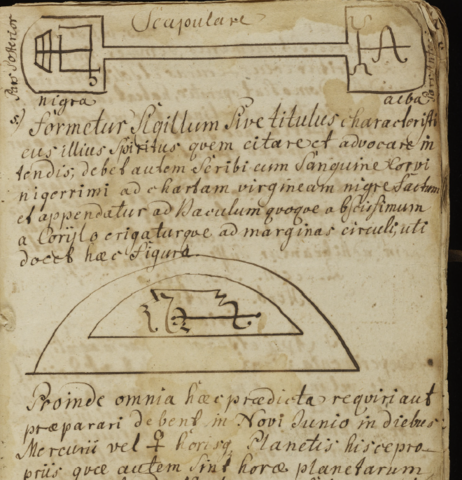 Scapulare
Pars Posterior
nigra
alba
5) Formetur Sigillum sive titulus characteristi
cus illius Spiritus quem citare et advocare in
tendis, debet autem Scribi cum Sanguine Corvi
nigerrimi ad chartam virgineam nigre factam
et appendatur ad Baculum quoque abscissum
a Corylo erigaturque ad margines circuli, uti
docet hæc Figura.
Proinde omnia hæc prædicta requiri aut
præparari debent in Novi Junio in diebus
Mercurii vel ♀ horisq. Planetis hisce pro-
priis quæ autem Sint horæ planetarum